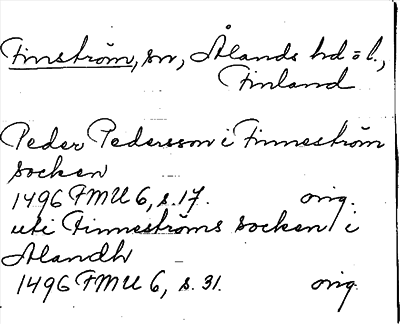 Finström, sn, Ålands hd o l.,
Finland
Peder Pedersson i Finneström
socken
1496 FMU 6, s. 17. orig.
uti Finneströms socken i
Alandh
1496 FMU 6, s. 31. orig.